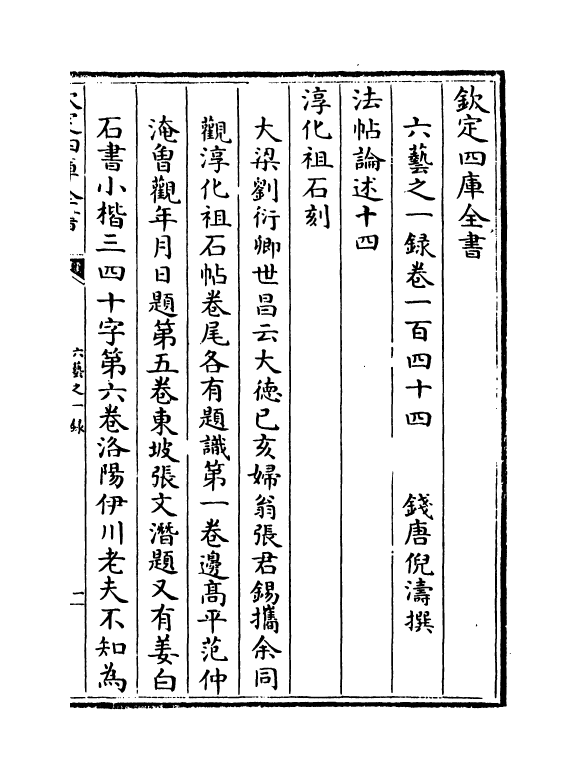 欽定四庫全書
六藝之一録卷一百四十四　　錢唐倪濤撰
法帖論述十四
淳化祖石刻
大梁劉衍卿世昌云大徳已亥婦翁張君錫攜余同
觀淳化祖石帖卷尾各有題識第一卷邊髙平范仲
淹曾觀年月日題第五卷東坡張文潛題又有姜白
石書小楷三四十字第六卷洛陽伊川老夫不知為
欽定四庫全書
六藝之一録
二